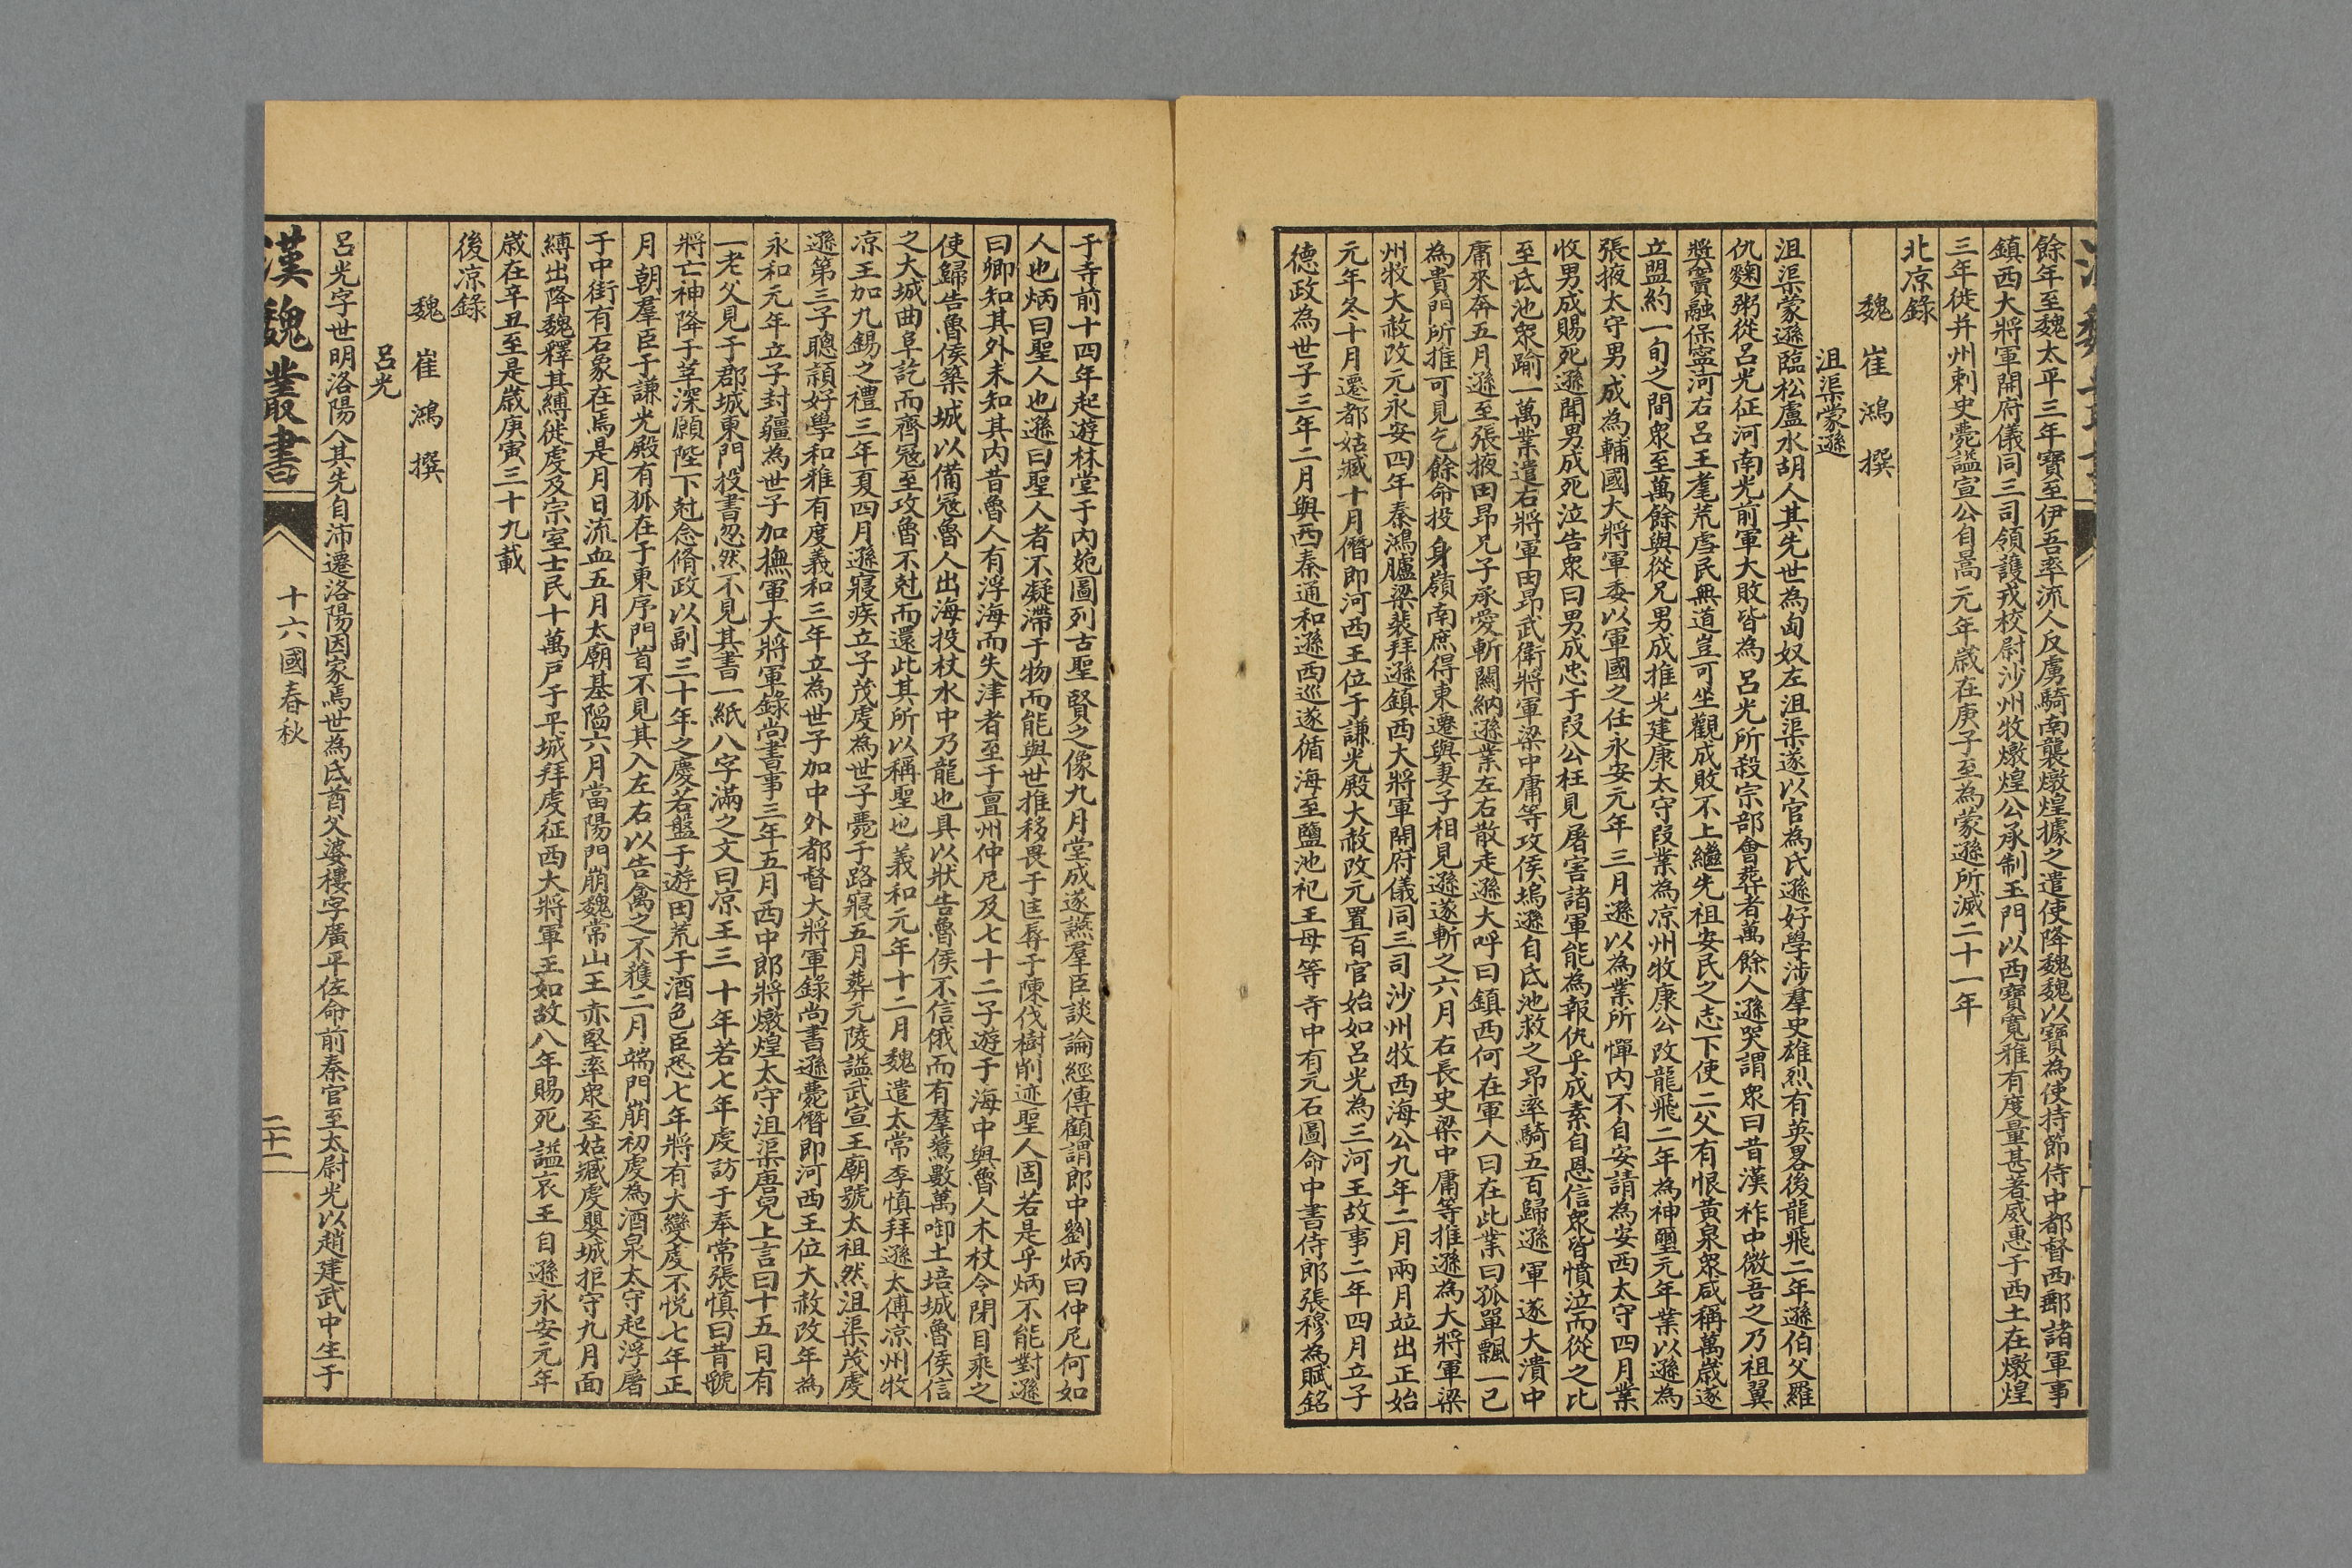 餘年至魏太平三年寶至伊吾率流人反虜騎南襲燉煌據之遣使降魏魏以寶為使持節侍中都督西郵諸軍事
鎮西大將軍開府儀同三司領護戎校尉沙州牧燉煌公承制玉門以西寶寬雅有度量甚著威惠于西土在燉煌
三年徙并州刺史薨謚宣公自暠元年歲在庚子至為蒙遜所滅二十一年
北凉錄
魏 崔鴻 撰
沮渠蒙遜
沮渠蒙遜臨松盧水胡人其先世為匈奴左沮渠遂以官為氏遜好學涉羣史雄烈有英畧後龍飛二年遜伯父羅
仇麴粥從呂光征河南光前軍大敗皆為呂光所殺宗部會葬者萬餘人遜哭謂衆曰昔漢祚中微吾之乃祖翼
獎竇融保寧河右呂王耄荒虐民無道豈可坐觀成敗不上繼先祖安民之志下使二父有恨黃泉衆咸稱萬歲遂
立盟約一旬之間衆至萬餘與從兄男成推光建康太守段業為凉州牧康公改龍飛二年為神璽元年業以遜為
張掖太守男成為輔國大將軍委以軍國之任永安元年三月遜以為業所憚內不自安請為安西太守四月業
收男成賜死遜聞男成死泣告衆曰男成忠于段公枉見屠害諸軍能為報仇乎成素自恩信衆皆憤泣而從之比
至氐池衆踰一萬業遣右將軍田昂武衛將軍梁中庸等攻侯塢遜自氐池救之昂率騎五百歸遜軍遂大潰中
庸來奔五月遜至張掖田昂兄子承愛斬關納遜業左右散走遜大呼曰鎮西何在軍人曰在此業曰孤單飄一已
為貴門所推可見乞餘命投身嶺南庶得東遷與妻子相見遜遂斬之六月右長史梁中庸等推遜為大將軍梁
州牧大赦改元永安四年秦鴻臚梁裴拜遜鎮西大將軍開府儀同三司沙州牧西海公九年二月兩月竝出正始
元年冬十月遷都姑臧十月僭即河西王位于謙光殿大赦改元置百官始如呂光為三河王故事二年四月立子
德政為世子三年二月與西秦通和遜西巡遂循海至鹽池祀王母等寺中有元石圖命中書侍郎張穆為賦銘
于寺前十四年起遊林堂于內苑圖列古聖賢之像九月堂成遂讌羣臣談論經傳顧謂郎中劉炳曰仲尼何如
人也炳曰聖人也遜曰聖人者不凝滯于物而能與世推移畏于匡辱于陳伐樹削迹聖人固若是乎炳不能對遜
曰卿知其外未知其內昔魯人有浮海而失津者至于亶州仲尼及七十二子遊于海中與魯人木杖令閉目乘之
使歸告魯侯築城以備寇魯人出海投杖水中乃龍也具以狀告魯侯不信俄而有羣鷔數萬啣土培城魯侯信
之大城曲阜訖而齊寇至攻魯不尅而還此其所以稱聖也義和元年十二月魏遣太常李慎拜遜太傅凉州牧
凉王加九錫之禮三年夏四月遜寢疾立子茂虔為世子薨于路寢五月葬元陵謚武宣王廟號太祖然沮渠茂虔
遜第三子聰頴好學和雅有度義和三年立為世子加中外都督大將軍錄尚書遜薨僭即河西王位大赦改年為
永和元年立子封疆為世子加撫軍大將軍錄尚書事三年五月西中郎將燉煌太守沮渠唐兒上言曰十五日有
一老父見于郡城東門投書忽然不見其書一紙八字滿之文曰凉王三十年若七年虔訪于奉常張慎曰昔虢
將亡神降于莘深願陛下尅念脩政以副三十年之慶若盤于遊田荒于酒色臣恐七年將有大變虔不悦七年正
月朝羣臣于謙光殿有狐在于東序門首不見其入左右以告禽之不獲二月端門崩初虔為酒泉太守起浮屠
于中街有石象在焉是月日流血五月太廟基陷六月當陽門崩魏常山王赤堅率衆至姑臧虔嬰城拒守九月面
縛出降魏釋其縛徙虔及宗室士民十萬戸于平城拜虔征西大將軍王如故八年賜死謚哀王自遜永安元年
歲在辛丑至是歲庚寅三十九載
後凉錄
魏 崔鴻 撰
呂光
呂光字世明洛陽人其先自沛遷洛陽因家焉世為氐酋父婆樓字廣平佐命前秦官至太尉光以趙建武中生于
漢魏叢書
十六國春秋
二十一